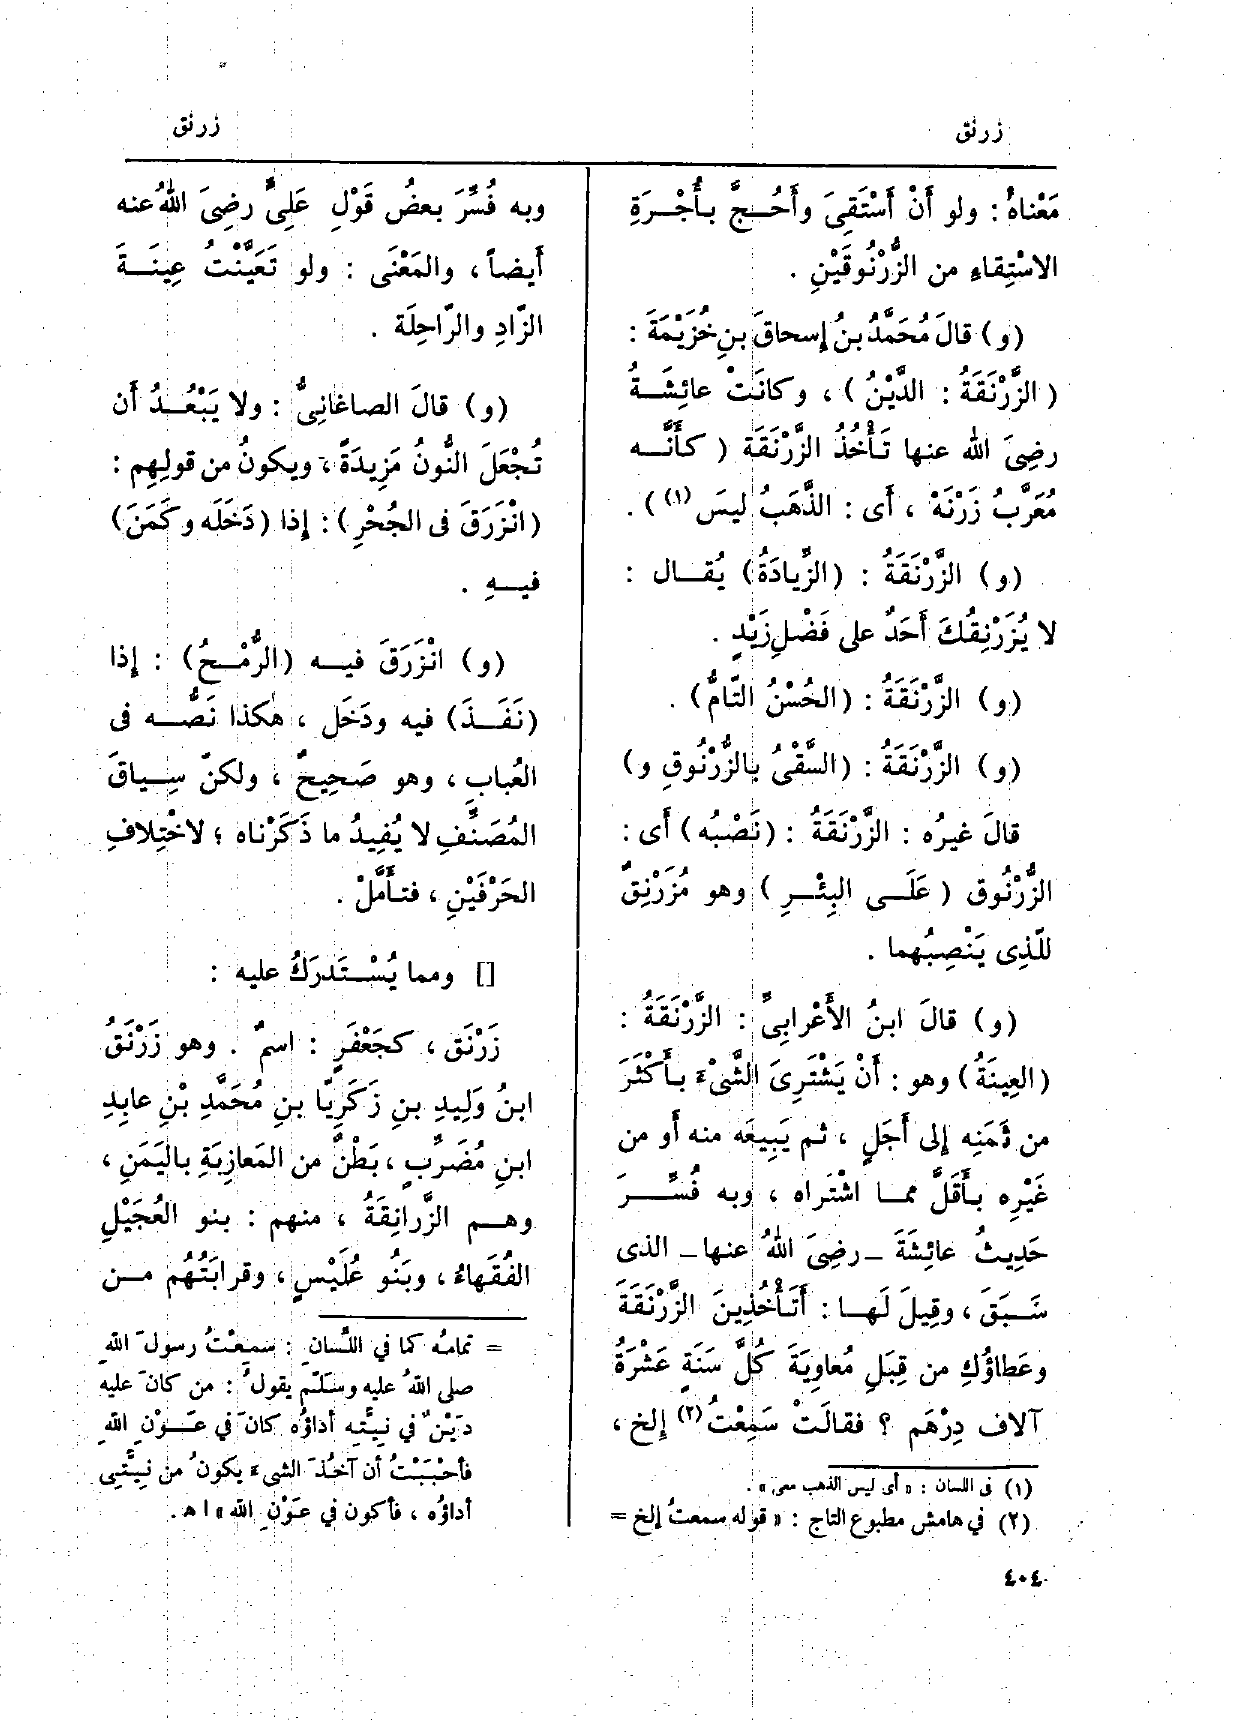 زرنق
زرنق
مَعْناهُ : ولو أَنْ أَسْتَقِىَ وأَحُـجَّ بـأُجْـرَةِ
الاسْتِقاءِ من الزُّرْنُوقَيْنِ .
(و) قالَ مُحَمَّدُ بنُ إسحاقَ بنِ خُزَيْمَةَ :
( الزَّرْنَقَةُ : الدَّيْنُ ) ، وكانَتْ عائِشَـةُ
رضِىَ الله عنها تَـأْخُذُ الزَّرْنَقَة ( كأَنَّـه
مُعَرَّبُ زَرْنَهْ ، أى : الذَّهَبُ ليسَ (١) ) .
(و) الزَّرْنَقَةُ : (الزِّيادَةُ) يُقـال :
لا يُزَرْنِقُكَ أَحَدٌ على فَضْلِ زَيْدٍ .
(و) الزَّرْنَقَةُ : (الحُسْنُ التّامُّ) .
(و) الزَّرْنَقَةُ : (السَّقْىُ بالزُّرْنُوقِ و)
قالَ غيرُه : الزَّرْنَقَةُ : (نَصْبُه) أى :
الزُّرْنُوق ( عَلَـى البِئْـرِ ) وهو مُزَرْنِقٌ
للّذِى يَنْصِبُهما .
(و) قالَ ابنُ الأَعْرابِىِّ : الزَّرْنَقَةُ :
(العِينَةُ) وهو : أَنْ يَشْتَرِىَ الشَّىْءَ بـأَكْثَرَ
من ثَمَنِه إلى أَجَلٍ ، ثم يَبِيعَه منه أو من
غَيْرِه بـأَقَلَّ ممـا اشْتَراه ، وبه فُسِّـرَ
حَدِيثُ عائِشَةَ ـ رضِىَ اللهُ عنها ـ الذى
سَـبَقَ ، وقِيلَ لَهـا : أَتَـأْخُذِينَ الزَّرْنَقَةَ
وعَطاؤُكِ من قِبَلِ مُعاوِيَةَ كُلَّ سَنَةٍ عَشْرَةُ
آلاف دِرْهَم ؟ فقالَتْ سَمِعْتُ (٢) إلخ ،
(١) فى اللسان : « أى ليس الذهب معى » .
(٢) في هامش مطبوع التاج : « قوله سمعتُ إلخ =
وبه فُسِّرَ بعضُ قَوْلِ عَلِىٍّ رضِىَ اللهُ عنه
أَيضاً ، والمَعْنَى : ولو تَعَيَّنْتُ عِينَـةَ
الزّادِ والرّاحِلَة .
(و) قالَ الصاغانِىُّ : ولا يَبْعُـدُ أن
تُجْعَلَ النُّونُ مَزِيدَةً ، ويكونُ من قولِهِم :
(انْزَرَقَ فى الجُحْرِ) : إذا (دَخَلَه وكَمَنَ)
فيـهِ .
(و) انْزَرَقَ فيـه (الرُّمْـحُ) : إذا
(نَفَـذَ) فيه ودَخَل ، هٰكذا نَصُّـه فى
العُبابِ ، وهو صَحِيحٌ ، ولكنّ سِـياقَ
المُصَنِّفِ لا يُفِيدُ ما ذَكَرْناه ؛ لاخْتِلافِ
الحَرْفَيْنِ ، فتـأَمَّلْ .
[] ومما يُسْـتَدرَكُ عليه :
زَرْنَق ، كجَعْفَرٍ : اسمٌ . وهو زَرْنَقُ
ابنُ وَلِيدِ بنِ زَكَرِيّا بنِ مُحَمَّدِ بْنِ عابِدِ
ابنِ مُضَرِّبٍ ، بَطْنٌ من المَعازِبَةِ باليَمَنِ ،
وهـم الزَّرانِقَةُ ، منهم : بنو العُجَيْلِ
الفُقَهاءُ ، وبَنُو عُلَيْسٍ ، وقرابَتُهُم مـن
= تمامُه كما في اللّسان : سمِعْتُ رسولَ اللهِ
صلى اللهُ عليه وسلّم يقولُ : من كانَ عليه
دَيْنٌ في نِيّتِه أداؤُه كانَ في عَـوْنِ اللهِ
فأحْبَبْتُ أن آخُذَ الشىءَ يكونُ من نِيّتِى
أداؤُه ، فأكون في عَوْنِ الله » ا هـ .
٤٠٤